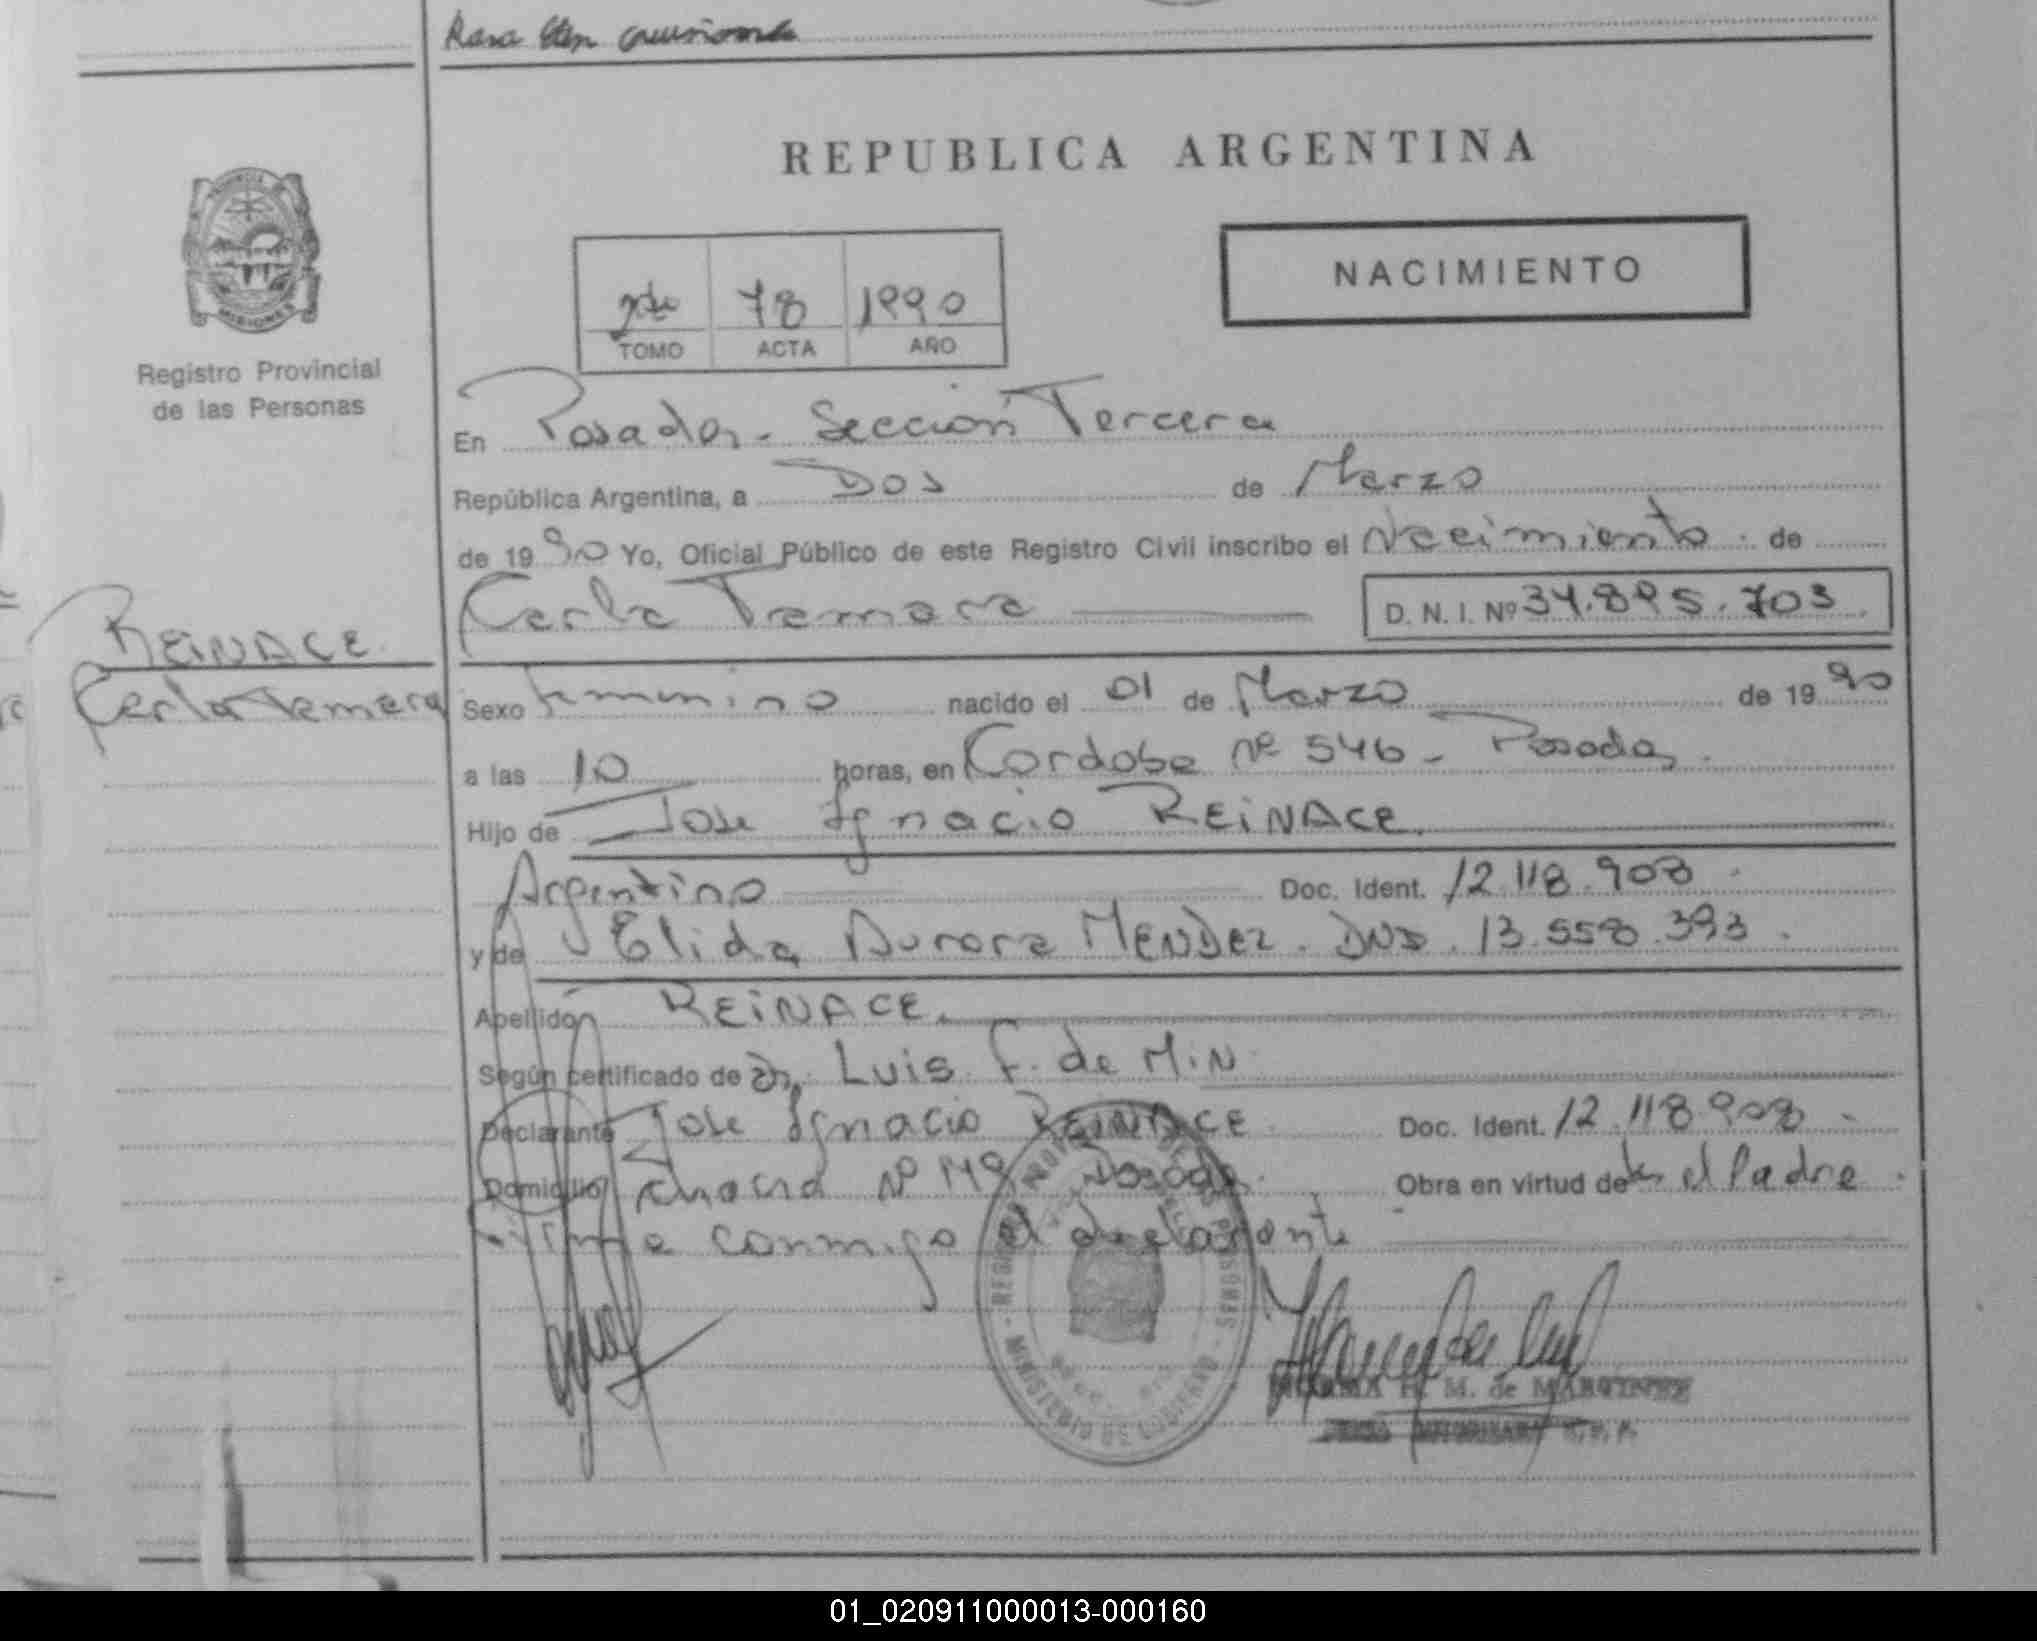 REPUBLICA ARGENTINA
NACIMIENTO
78 1990
TOMO ACTA AÑO
PROVINCIA
MISIONES
Registro Provincial
de las Personas
En Posadas - Sección Tercera
República Argentina, a Dos de Marzo
de 1990 Yo, Oficial Público de este Registro Civil inscribo el Nacimiento . de
Carla Tamara D. N. I. Nº 34.895.703
REINACE.
Carla Tamara
Sexo femenino nacido el 01 de Marzo de 1990
a las 10 horas, en Cordoba Nº 546 - Posadas.
Hijo de Jose Ignacio REINACE.
Argentino Doc. Ident. 12.118.908.
y de Elida Aurora MENDEZ. DNI. 13.558.393.
Apellido REINACE.
Según certificado de Dr. Luis F. de MiN
Declarante Jose Ignacio REINACE Doc. Ident. 12.118.908.
Domicilio Chacra Nº 149 Posadas. Obra en virtud de el Padre.
Firma conmigo el declarante
MINISTERIO DE GOBIERNO
H. M. de MARTINEZ
01_020911000013-000160